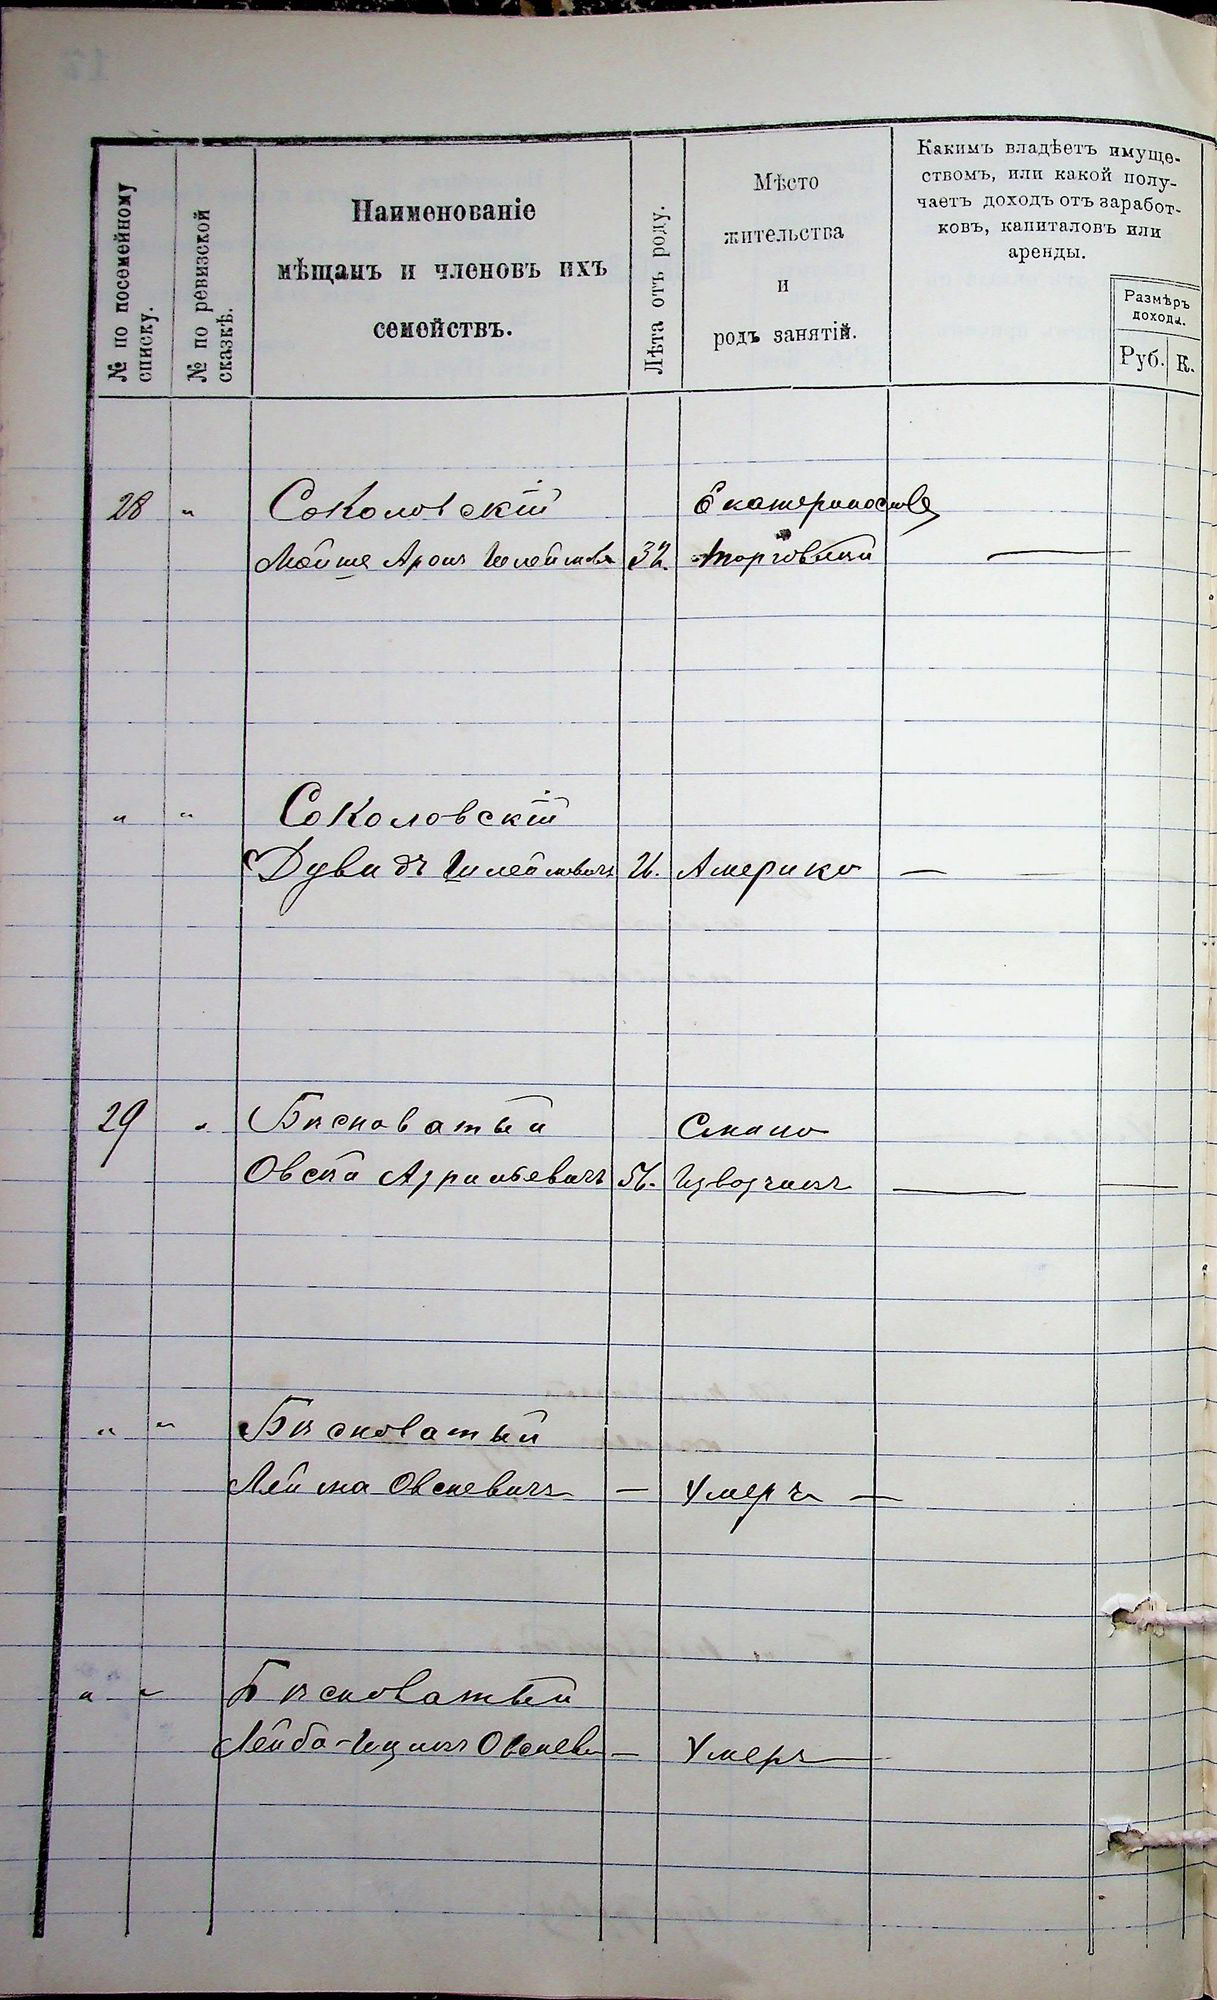 № по посемейному
списку.
№ по ревизской
сказкѣ.
Наименованіе
мѣщанъ и членовъ ихъ
семействъ.
Лѣта отъ роду.
Мѣсто
жительства
и
родъ занятій.
Какимъ владѣетъ имуще-
ствомъ, или какой полу-
чаетъ доходъ отъ заработ-
ковъ, капиталовъ или
аренды.
Размѣръ
дохода.
Руб. К.
28 " Соколовскій Екатеринослав
Мойше Аронъ Шлеймов 32. торговыни
" " Соколовскій
Дувидъ Шлеймовичъ Америка —
29 " Бѣсноватый Смила
Овсей Азрильевичъ 56. Извозчикъ —
" " Бѣсноватый
Лейма Овсеевичъ — Умеръ —
" " Бѣсноватый
Лейба-Ицикъ Овсеев — Умеръ